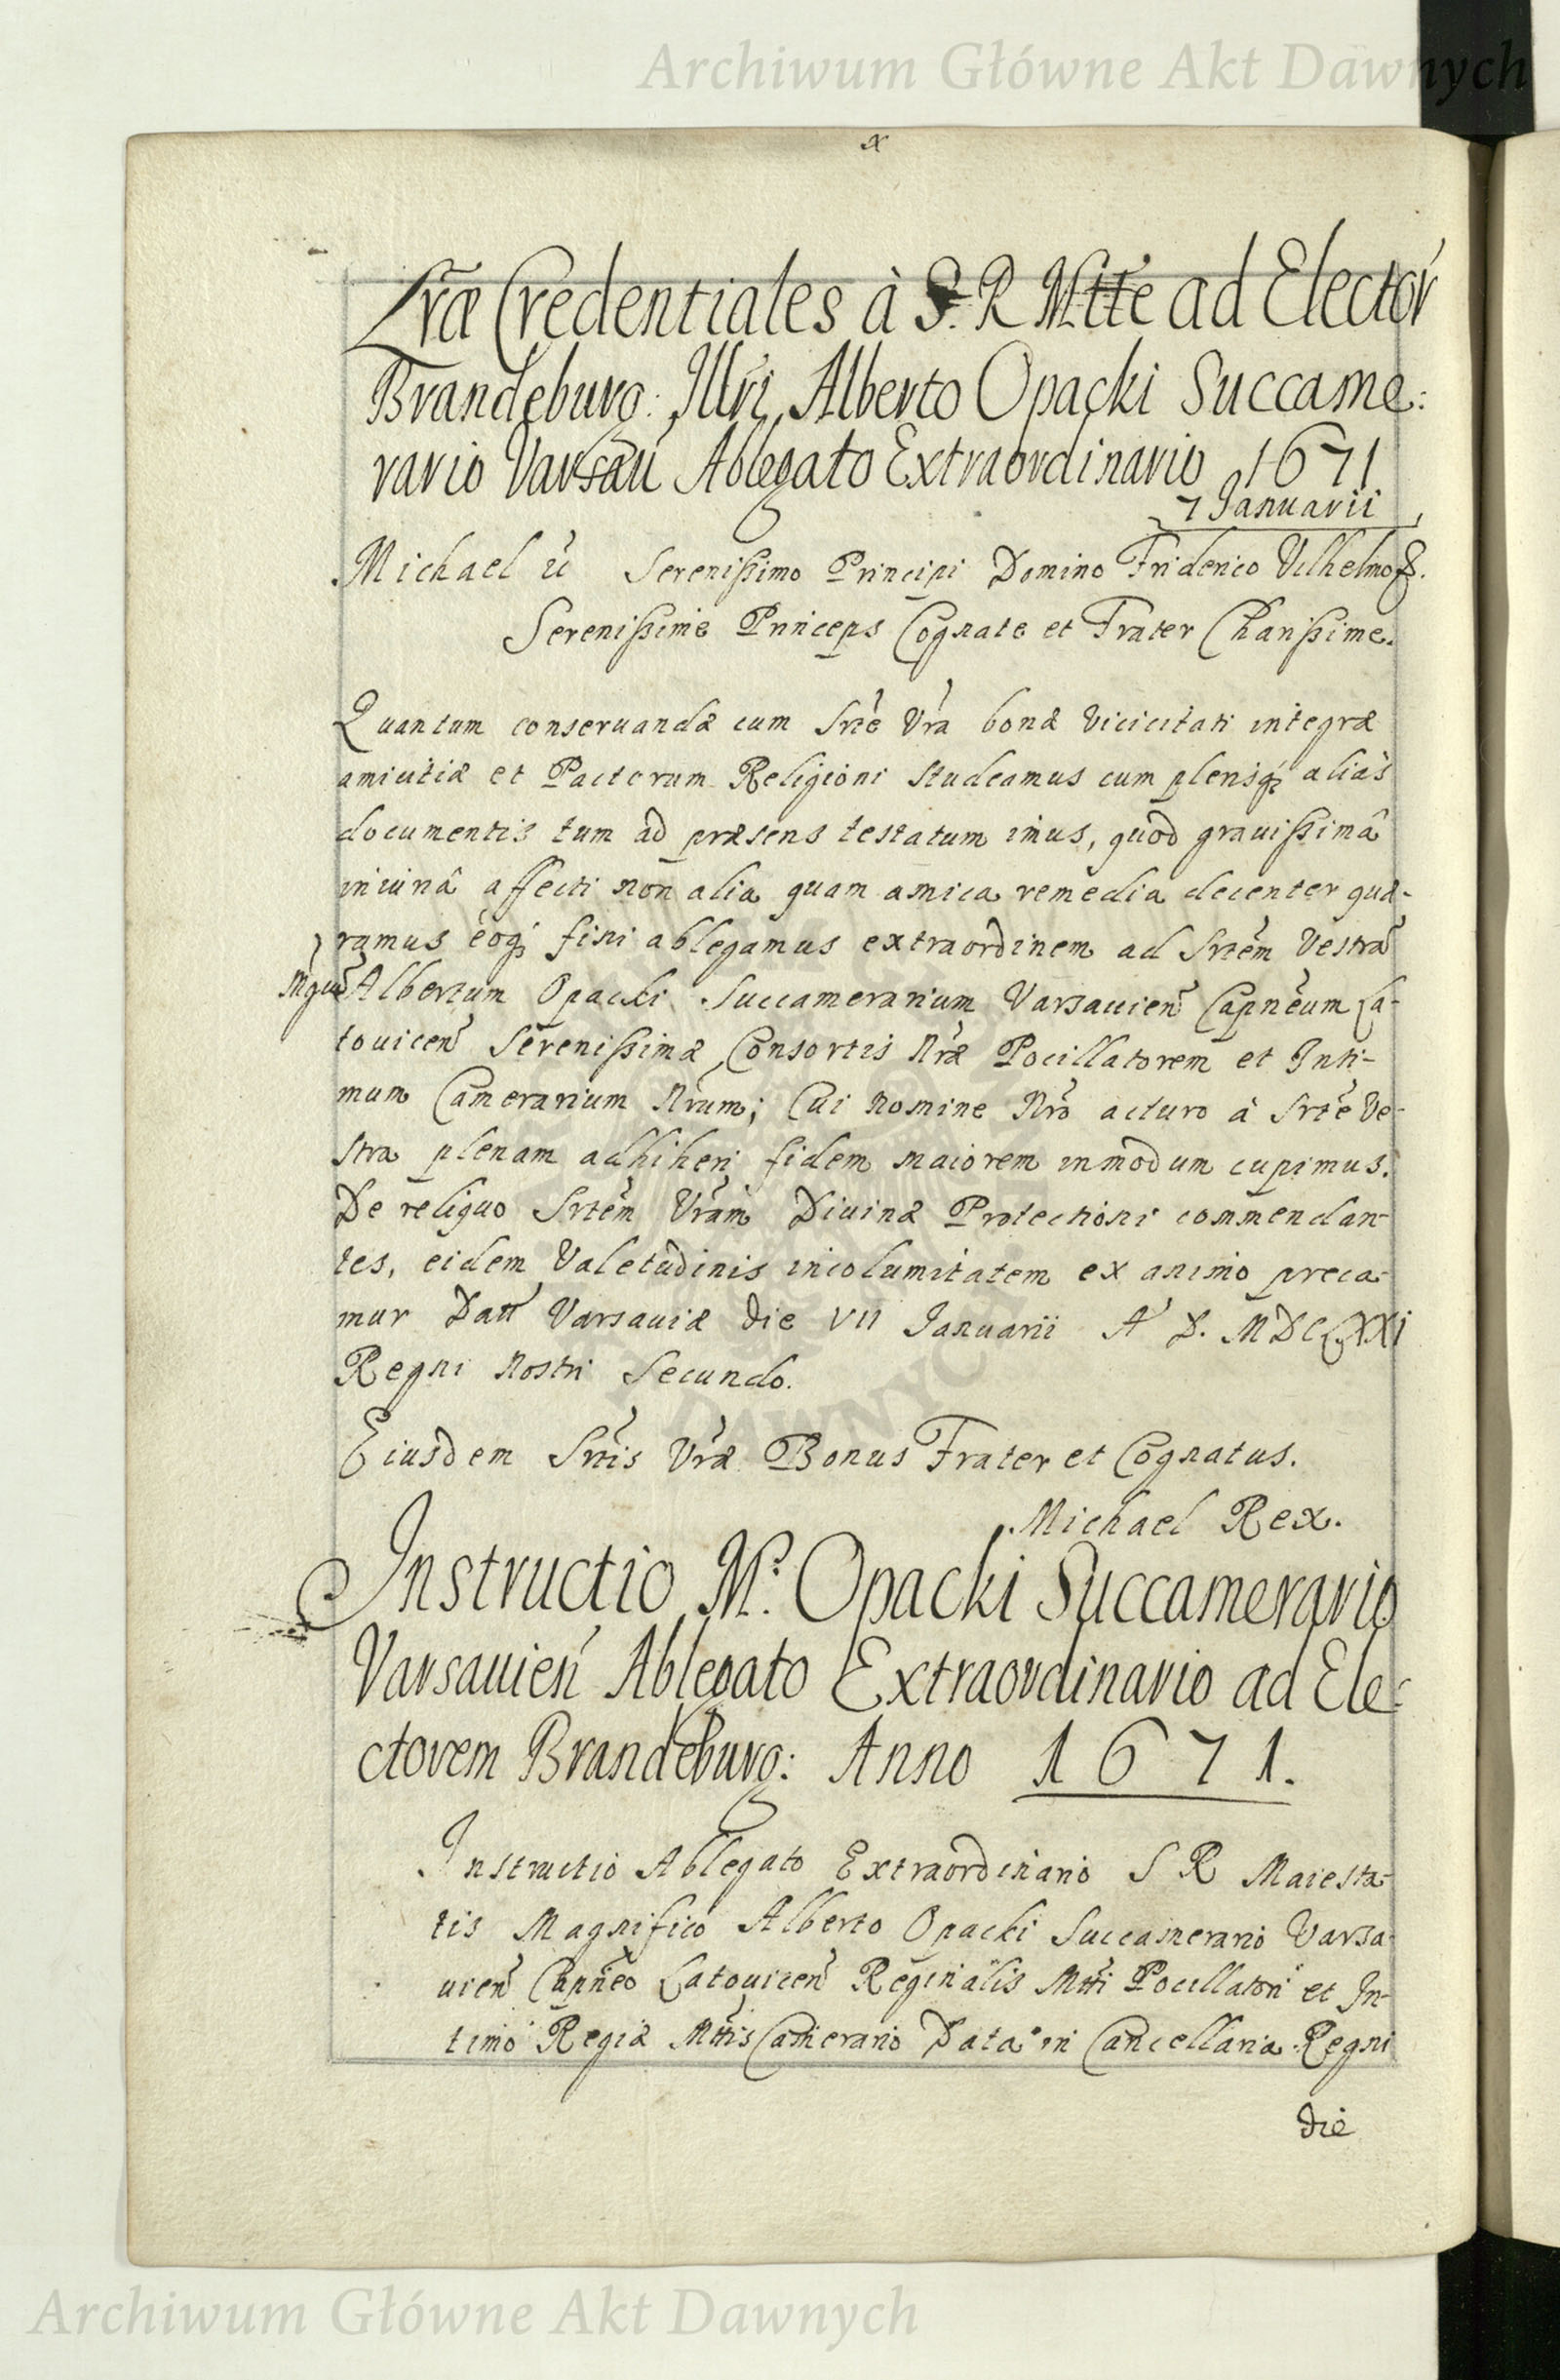 Archiwum Główne Akt Dawnych
x
Lræ Credentiales à S. R Mtte ad Elector
Brandeburg: Illri Alberto Opacki Succame:
rario Varsau Ablegato Extraordinario 1671
7 Januarii
Michael ꝛc Serenissimo Principi Domino Friderico Vilhelmo &.
Serenissime Princeps Cognate et Frater Charissime.
Quantum conseruandæ cum Srte Vra bonæ vicicitati integræ
amicitiæ et Pactorum Religioni studeamus cum plerisq; aliàs
documentis tum ad præsens testatum imus, quod grauissimâ
iniuriâ affecti non alia quam amica remedia decenter quæ-
ramus eoq; fini ablegamus extraordinem ad Srtem Vestrã
Mgcũ Albertum Opacki Succamerarium Varsauien Capneum La-
touicen Serenissimæ Consortis Nræ Pocillatorem et Inti-
mum Camerarium Nrum; Cui nomine Nro acturo à Srte Ve-
stra plenam adhiberi fidem maiorem inmodum cupimus.
De reliquo Srtem Vram Diuinæ Protectioni commendan-
tes, eidem Valetudinis incolumitatem ex animo preca-
mur Datt Varsauiæ die VII Januarii A D. MDCLXXI
Regni Nostri Secundo.
Eiusdem Srtis Vræ Bonus Frater et Cognatus.
Michael Rex.
Instructio M. Opacki Succamerario
Varsauien Ablegato Extraordinario ad Ele:
ctorem Brandeburg: Anno 1671.
Instructio Ablegato Extraordinario S R Maiesta-
tis Magnifico Alberto Opacki Succamerario Varsa-
uien Capneo Latouicen Reginalis Mtti Pocillatori et In-
timo Regiæ Mttis Camerario Data in Cancellaria Regni
die
Archiwum Główne Akt Dawnych